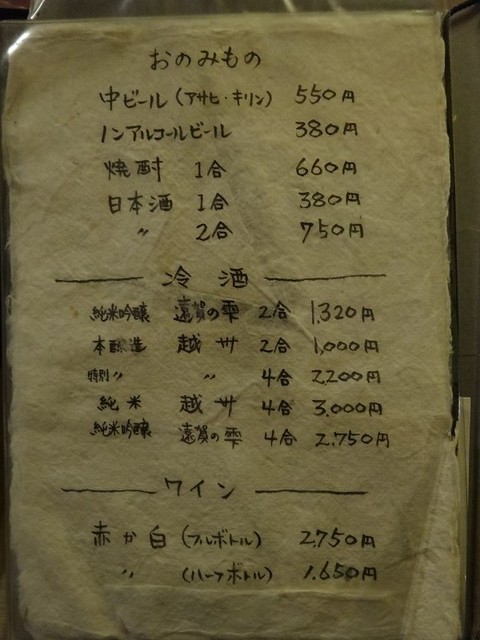 おのみもの
中ビール (アサヒ・キリン) 550円
ノンアルコールビール 380円
焼酎 1合 660円
日本酒 1合 380円
〃 2合 750円
冷酒
純米吟醸 遠賀の雫 2合 1,320円
本醸造 越サ 2合 1,000円
特別〃 〃 4合 2,200円
純米 越サ 4合 3,000円
純米吟醸 遠賀の雫 4合 2,750円
ワイン
赤か白 (フルボトル) 2,750円
〃 (ハーフボトル) 1,650円